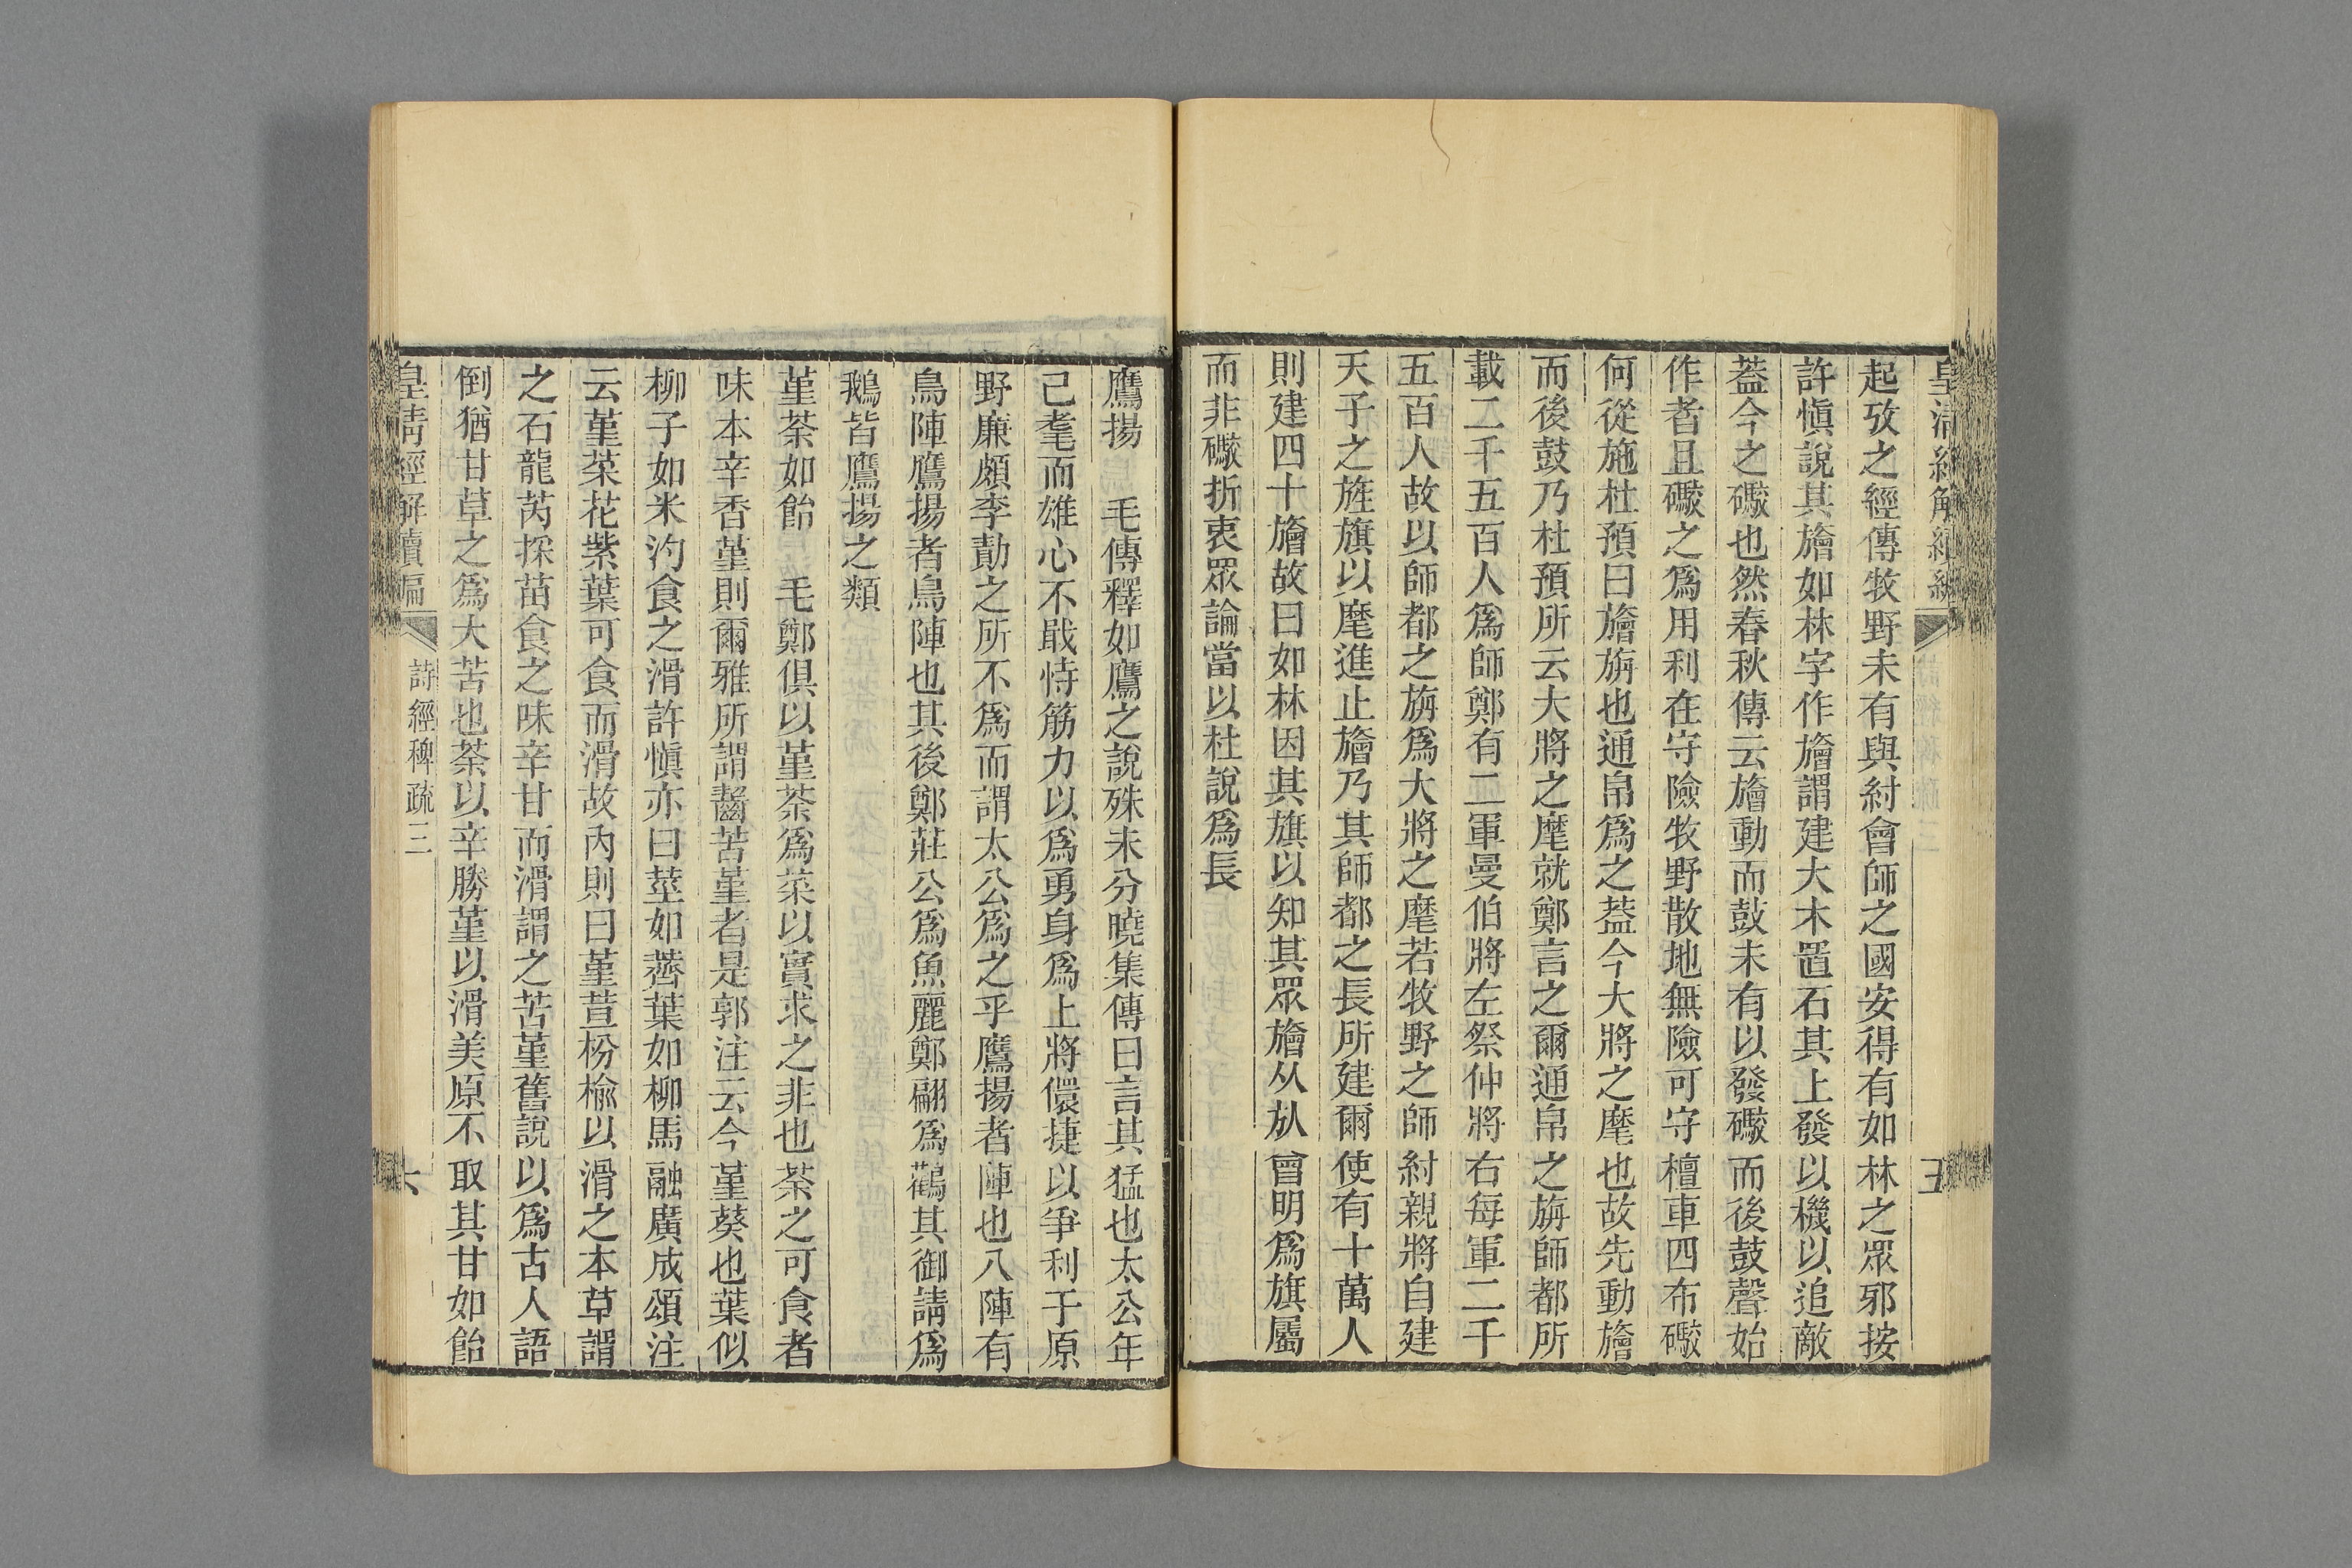 起攷之經傳牧野未有與紂會師之國安得有如林之眾邪按
許愼說其旝如林字作旝謂建大木置石其上發以機以追敵
葢今之礮也然春秋傳云旝動而鼓未有以發礮而後鼓聲始
作者且礮之爲用利在守險牧野散地無險可守檀車四布礮
何從施杜預曰旝旃也通帛爲之葢今大將之麾也故先動旝
而後鼓乃杜預所云大將之麾就鄭言之爾通帛之旃師都所
載二千五百人爲師鄭有二軍曼伯將左祭仲將右每軍二千
五百人故以師都之旃爲大將之麾若牧野之師紂親將自建
天子之旌旗以麾進止旝乃其師都之長所建爾使有十萬人
則建四十旝故曰如林因其旗以知其眾旝从㫃會明爲旗屬
而非礮折衷眾論當以杜說爲長
鷹揚　毛傳釋如鷹之說殊未分曉集傳曰言其猛也太公年
已耄而雄心不戢恃筋力以爲勇身爲上將儇捷以爭利于原
野廉頗李勣之所不爲而謂太公爲之乎鷹揚者陣也八陣有
鳥陣鷹揚者鳥陣也其後鄭莊公爲魚麗鄭翩爲鸛其御請爲
鵝皆鷹揚之類
堇荼如飴　毛鄭俱以堇荼爲菜以實求之非也荼之可食者
味本辛香堇則爾雅所謂齧苦堇者是郭注云今堇葵也葉似
柳子如米汋食之滑許愼亦曰莖如薺葉如柳馬融廣成頌注
云堇菜花紫葉可食而滑故內則曰堇荁枌楡以滑之本草謂
之石龍芮採苗食之味辛甘而滑謂之苦堇舊說以爲古人語
倒猶甘草之爲大苦也荼以辛勝堇以滑美原不取其甘如飴
皇淸經解續編
詩經稗疏三
六